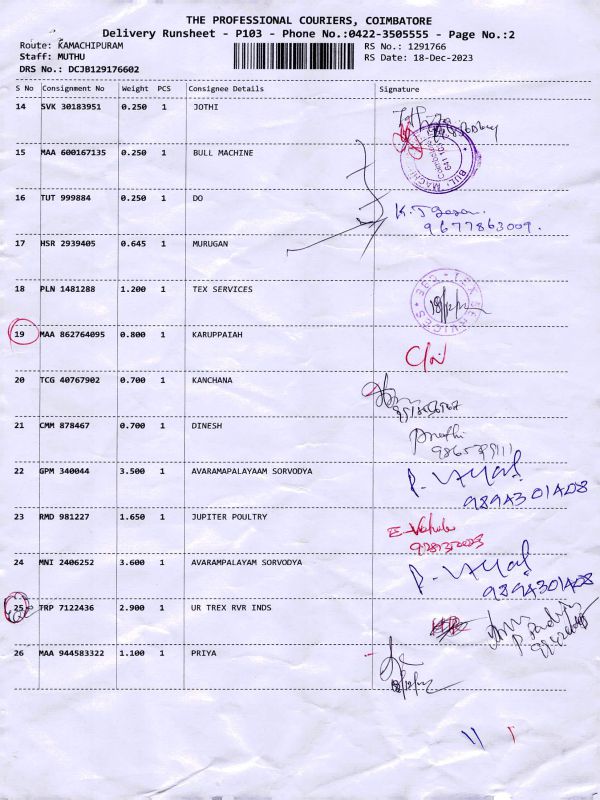 THE PROFESSIONAL COURIERS, COIMBATORE
Delivery Runsheet - P103 - Phone No.:0422-3505555 - Page No.:2
Route: KAMACHIPURAM
RS No.: 1291766
Staff: MUTHU
RS Date: 18-Dec-2023
DRS No.: DCJB129176602
S No Consignment No Weight PCS Consignee Details Signature
14 SVK 30183951 0.250 1 JOTHI
15 MAA 600167135 0.250 1 BULL MACHINE
16 TUT 999884 0.250 1 DO
9677863009.
17 HSR 2939405 0.645 1 MURUGAN
18 PLN 1481288 1.200 1 TEX SERVICES
19 MAA 862764095 0.800 1 KARUPPAIAH
20 TCG 40767902 0.700 1 KANCHANA
21 CMM 878467 0.700 1 DINESH
22 GPM 340044 3.500 1 AVARAMAPALAYAAM SORVODYA
9894301408
23 RMD 981227 1.650 1 JUPITER POULTRY
24 MNI 2406252 3.600 1 AVARAMPALAYAM SORVODYA
9894301408
25 TRP 7122436 2.900 1 UR TREX RVR INDS
26 MAA 944583322 1.100 1 PRIYA